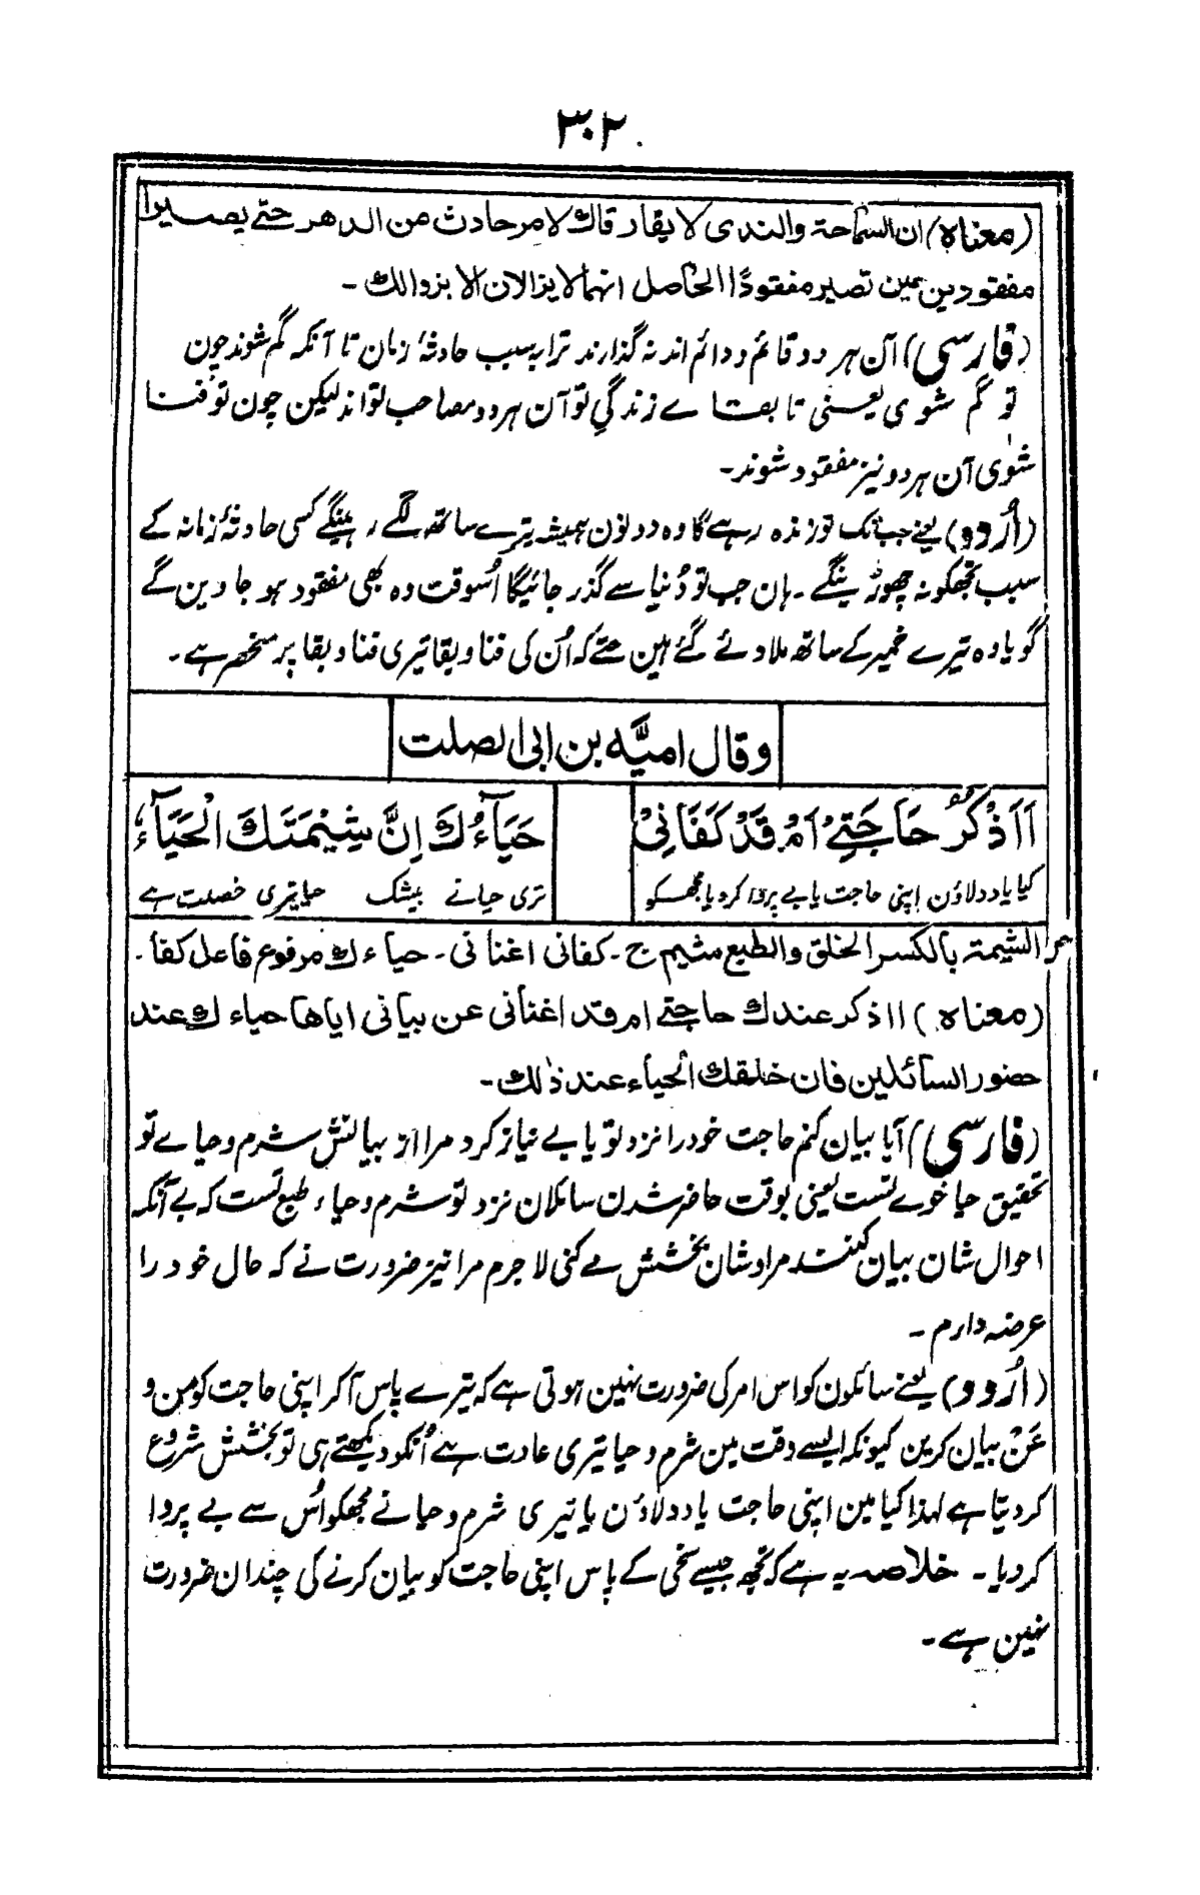 ۳۰۲
(معناه) ان السماحة والندى لا يفارقاك لامر حادث من الدهر حتے يصيرا
مفقودين حين تصير مفقودًا الحاصل انهما لا يزالان الا بزوالك ۔
(فارسی) آن ہر دو قائم و دائم اند نہ گذارند ترا بسبب حادثۂ زمان تا آنکہ گم شوند چون
تو گم شوی یعنی تا بقاے زندگیِ تو آن ہر دو مصاحب تواند لیکن چون تو فنا
شوی آن ہر دو نیز مفقود شوند۔
(اُردو) یعنے جب تک تو زندہ رہے گا وہ دونون ہمیشہ تیرے ساتھ لگے رہینگے کسی حادثۂ زمانہ کے
سبب تجھکو نہ چھوڑینگے ۔ ہان جب تو دُنیا سے گذر جائیگا اُسوقت وہ بھی مفقود ہو جاوین گے
گویا وہ تیرے خمیر کے ساتھ ملا دئے گئے ہین حتے کہ اُن کی فنا و بقا تیری فنا و بقا پر منحصر ہے ۔
وقال اميّه بن ابی الصلت
أَاَذْكُرُ حَاجَتِےْ اَمْ قَدْ كَفَانِیْ حَيَآءُكَ اِنَّ شِيْمَتَكَ الْحَيَآءُ
کیا یاد دلاؤن اپنی حاجت یا بے پروا کر دیا مجھکو تری حیا نے بیشک حیا تیری خصلت ہے
الشيمة بالكسر الخلق والطبع شيم ج ۔ كفانی اغنانی ۔ حياءك مرفوع فاعل كفا ۔
(معناه) أاذكر عندك حاجتے ام قد اغنانی عن بيانی اياها حياءك عند
حضور السائلين فان خلقك الحياء عند ذلك ۔
(فارسی) آیا بیان کنم حاجت خود را نزد تو یا بے نیاز کرد مرا از بیانش شرم و حیاے تو
تحقیق حیا خوے تست یعنی بوقت حاضر شدن سائلان نزد تو شرم و حیاء طبع تست کہ بے آنکہ
احوال شان بیان کنند مراد شان بخشش مے کنی لاجرم مرا نیز ضرورت نے کہ حال خود را
عرضہ دارم ۔
(اُردو) یعنے سائلون کو اس امر کی ضرورت نہین ہوتی ہے کہ تیرے پاس آکر اپنی حاجت کو من و
عَنْ بیان کرین کیونکہ ایسے وقت مین شرم و حیا تیری عادت ہے اُنکو دیکھتے ہی تو بخشش شروع
کردیتا ہے لہذا کیا مین اپنی حاجت یاد دلاؤن یا تیری شرم و حیا نے مجھکو اُس سے بے پروا
کردیا ۔ خلاصہ یہ ہے کہ تجھ جیسے سخی کے پاس اپنی حاجت کو بیان کرنے کی چندان ضرورت
نہین ہے ۔